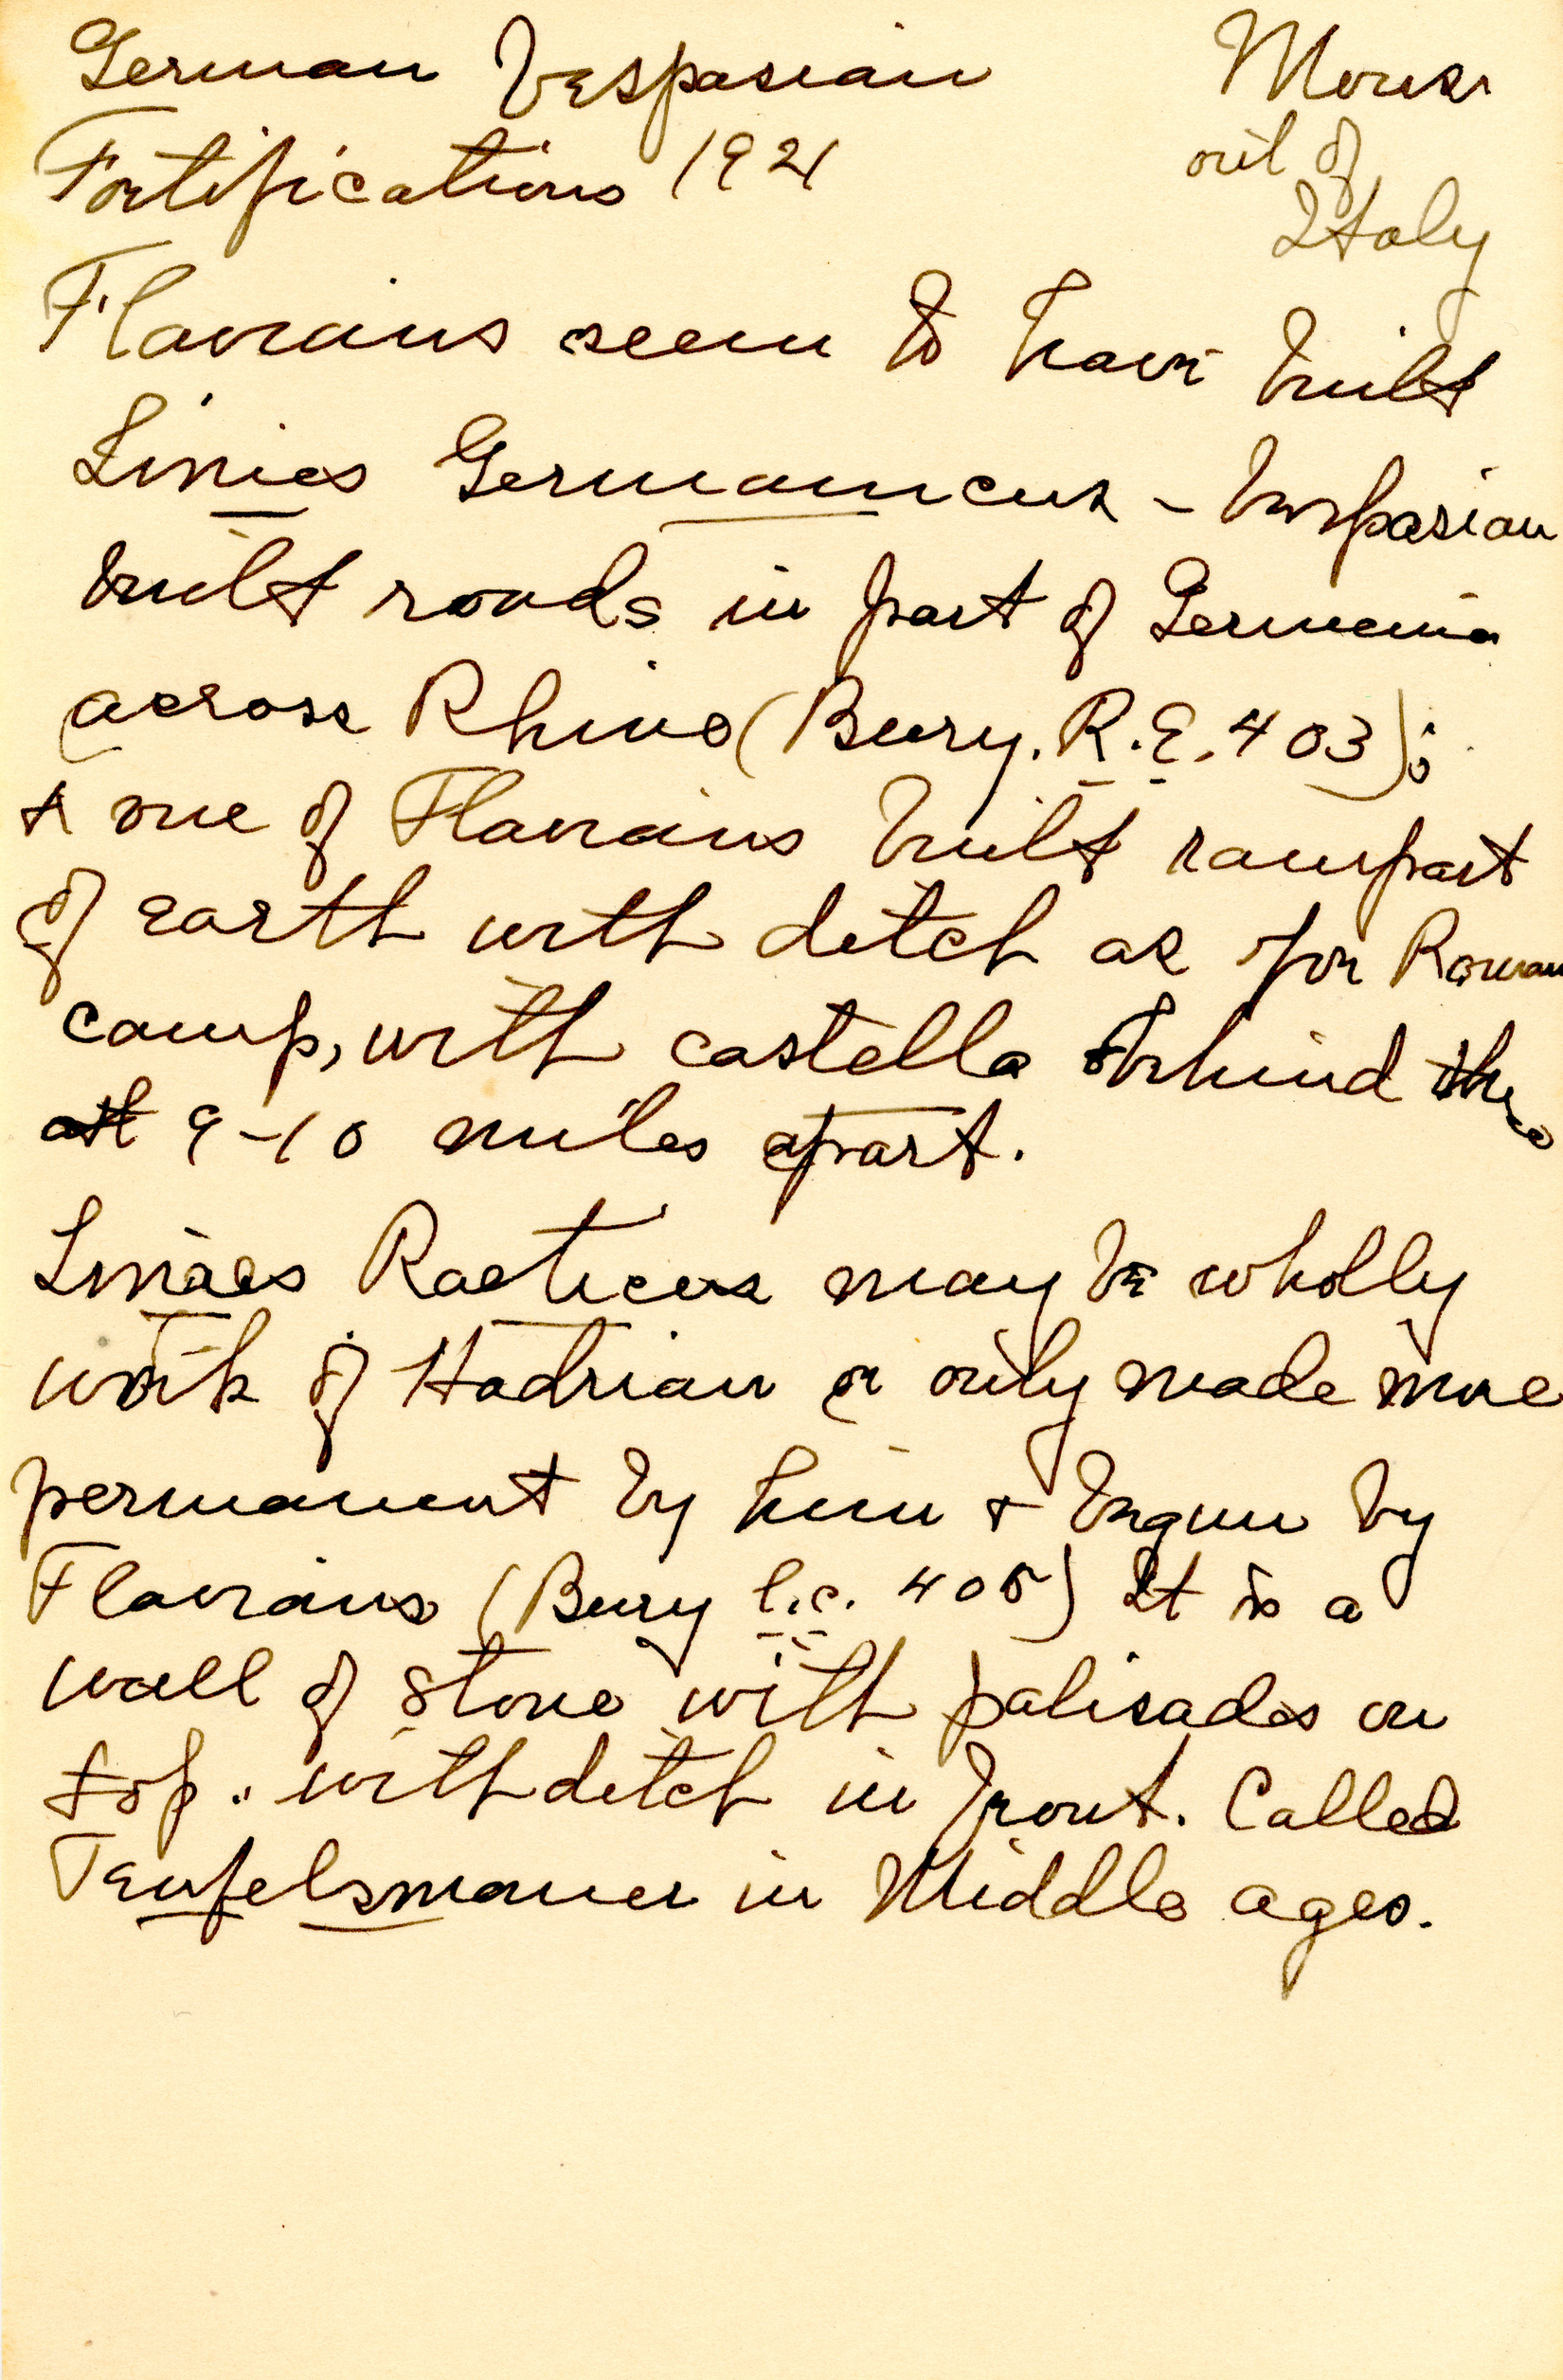 German Vespasian
Fortifications 1921
out of
Italy
Flavians seem to have built
Limes Germanicus - Vespasian
built roads in part of Germania
across Rhine (Bury. R.E. 403);
+ one of Flavians built rampart
of earth with ditch as for Roman
camp, with castella behind
at 9-10 miles apart.
Limes Raeticus may be wholly
work of Hadrian or only made more
permanent by him + begun by
Flavians (Bury l.c. 405) It is a
wall of stone with palisades on
top. with ditch in front. Called
Teufelsmauer in Middle ages.